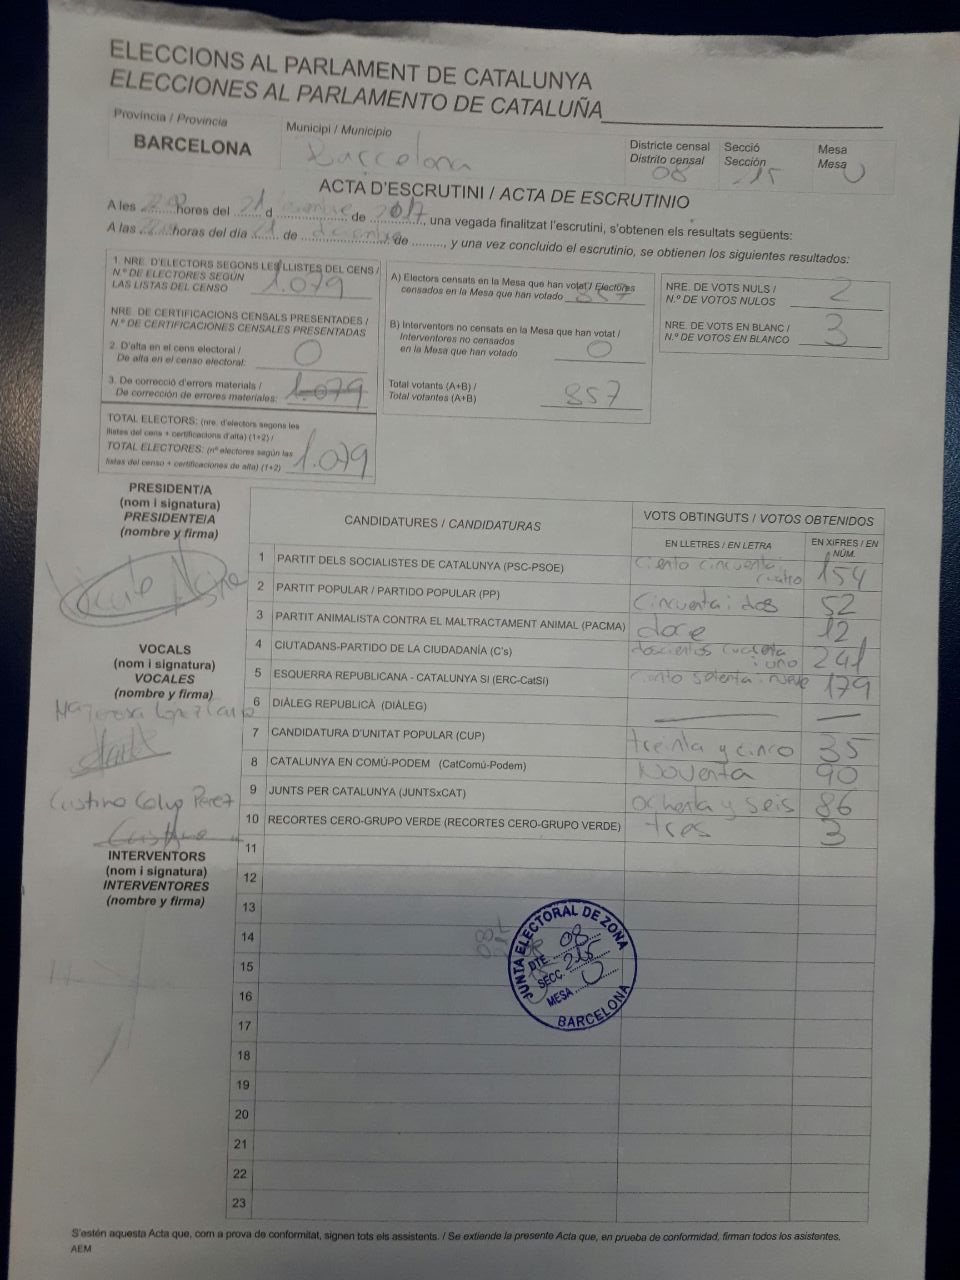 ELECCIONS AL PARLAMENT DE CATALUNYA
ELECCIONES AL PARLAMENTO DE CATALUÑA
Província / Provincia
BARCELONA
Municipi / Municipio
Barcelona
Districte censal
Distrito censal
08
Secció
Sección
Mesa
Mesa
U
ACTA D'ESCRUTINI / ACTA DE ESCRUTINIO
A les hores del 21 d de 2017, una vegada finalitzat l'escrutini, s'obtenen els resultats següents:
A las horas del día 21 de diciembre de, y una vez concluido el escrutinio, se obtienen los siguientes resultados:
1. NRE. D'ELECTORS SEGONS LES LLISTES DEL CENS /
N.º DE ELECTORES SEGÚN
LAS LISTAS DEL CENSO
1.079
NRE. DE CERTIFICACIONS CENSALS PRESENTADES /
N.º DE CERTIFICACIONES CENSALES PRESENTADAS
2. D'alta en el cens electoral /
De alta en el censo electoral:
0
3. De correcció d'errors materials /
De corrección de errores materiales:
1.079
TOTAL ELECTORS: (nre. d'electors segons les
llistes del cens + certificacions d'alta) (1+2) /
TOTAL ELECTORES: (nº electores según las
listas del censo + certificaciones de alta) (1+2)
1.079
A) Electors censats en la Mesa que han votat / Electores
censados en la Mesa que han votado
857
B) Interventors no censats en la Mesa que han votat /
Interventores no censados
en la Mesa que han votado
0
Total votants (A+B) /
Total votantes (A+B)
857
NRE. DE VOTS NULS /
N.º DE VOTOS NULOS
2
NRE. DE VOTS EN BLANC /
N.º DE VOTOS EN BLANCO
3
PRESIDENT/A
(nom i signatura)
PRESIDENTE/A
(nombre y firma)
VOCALS
(nom i signatura)
VOCALES
(nombre y firma)
INTERVENTORS
(nom i signatura)
INTERVENTORES
(nombre y firma)
CANDIDATURES / CANDIDATURAS
VOTS OBTINGUTS / VOTOS OBTENIDOS
EN LLETRES / EN LETRA
EN XIFRES / EN NÚM.
1 PARTIT DELS SOCIALISTES DE CATALUNYA (PSC-PSOE) Ciento cincuenta cuatro 154
2 PARTIT POPULAR / PARTIDO POPULAR (PP) Cincuenta i dos 52
3 PARTIT ANIMALISTA CONTRA EL MALTRACTAMENT ANIMAL (PACMA) doce 12
4 CIUTADANS-PARTIDO DE LA CIUDADANÍA (C's) doscientos cuarenta i uno 241
5 ESQUERRA REPUBLICANA - CATALUNYA SÍ (ERC-CatSí) ciento setenta i nueve 179
6 DIÀLEG REPUBLICÀ (DIÀLEG)
7 CANDIDATURA D'UNITAT POPULAR (CUP) treinta y cinco 35
8 CATALUNYA EN COMÚ-PODEM (CatComú-Podem) Noventa 90
9 JUNTS PER CATALUNYA (JUNTSxCAT) Ochenta y seis 86
10 RECORTES CERO-GRUPO VERDE (RECORTES CERO-GRUPO VERDE) tres 3
11
12
13
14
15
16
17
18
19
20
21
22
23
JUNTA ELECTORAL DE ZONA
DTE. 08
SECC. 215
MESA U
BARCELONA
S'estén aquesta Acta que, com a prova de conformitat, signen tots els assistents. / Se extiende la presente Acta que, en prueba de conformidad, firman todos los asistentes.
AEM